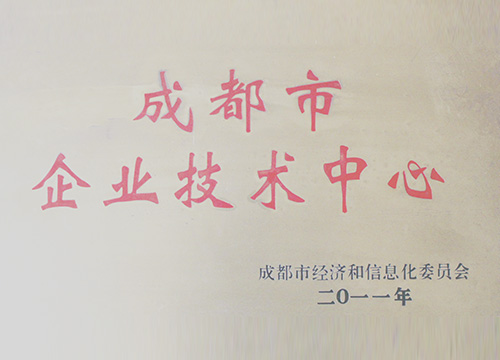 成都市
企业技术中心
成都市经济和信息化委员会
二〇一一年